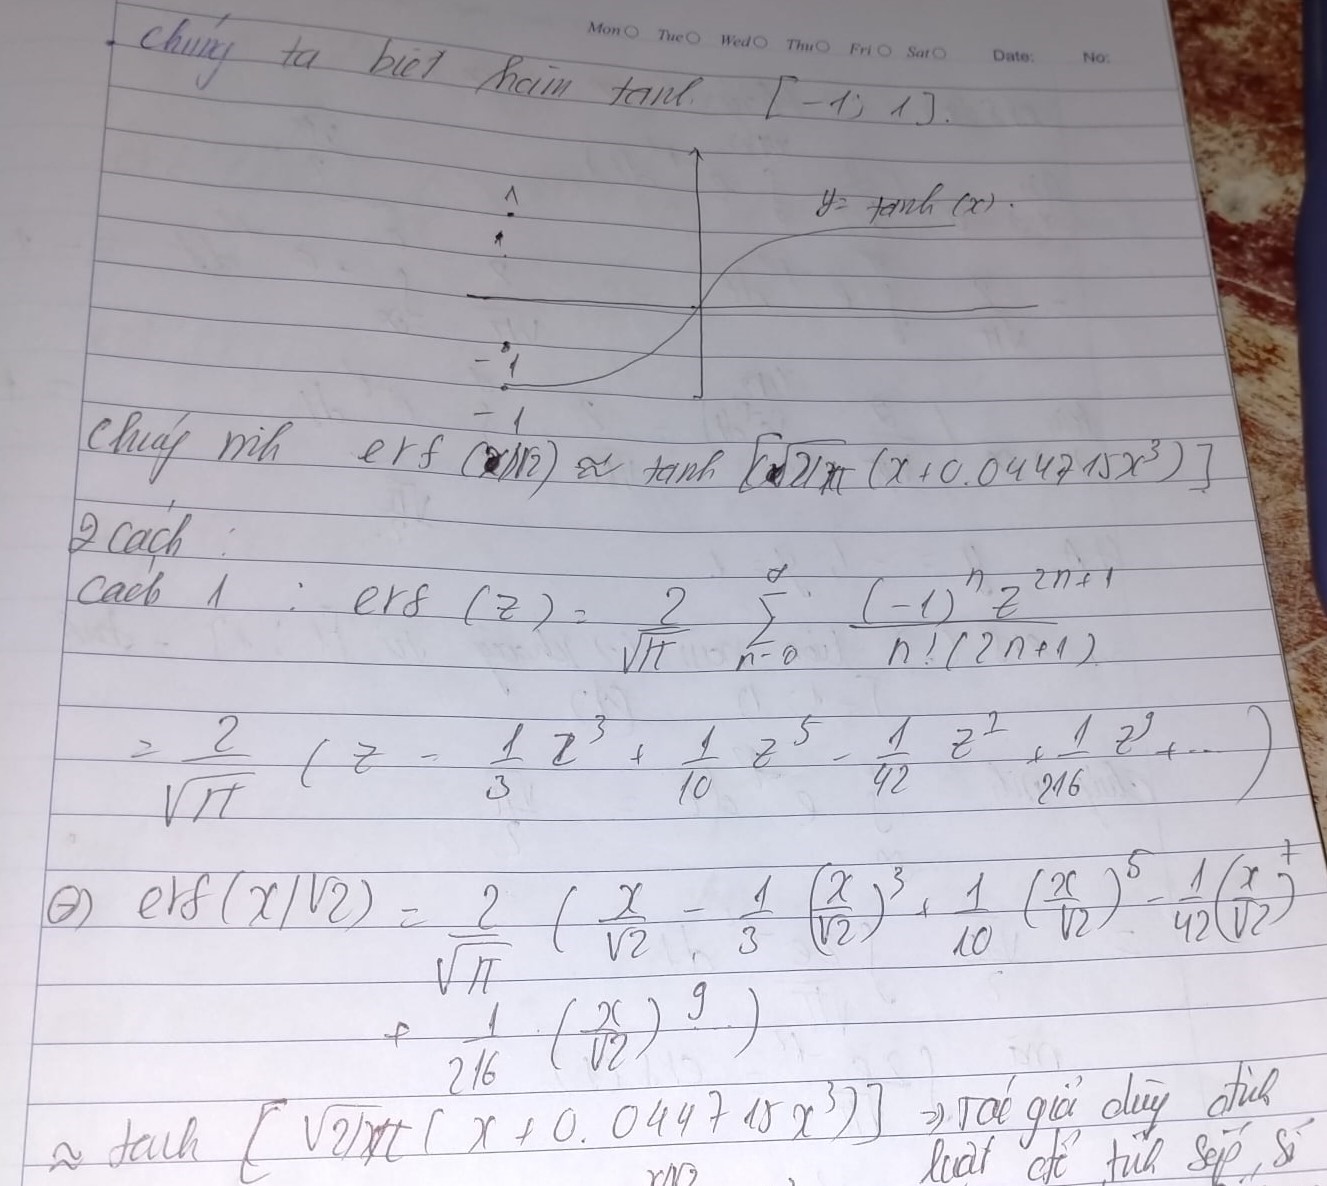 Mon Tue Wed Thu Fri Sat Date: No:
chúng ta biết hàm tanh [-1; 1].
1
y = tanh (x).
-1
-1
chứng minh erf (x/√2) ≈ tanh [√2/π (x+0.044715x³)]
2 cách :
Cách 1 : erf (z) = 2/√π ∑ n=0 (-1)ⁿ z²ⁿ⁺¹ / n! (2n+1)
= 2/√π ( z - 1/3 z³ + 1/10 z⁵ - 1/42 z⁷ + 1/216 z⁹ + ... )
erf(x/√2) = 2/√π ( x/√2 - 1/3 (x/√2)³ + 1/10 (x/√2)⁵ - 1/42 (x/√2)⁷
+ 1/216 (x/√2)⁹ )
≈ tanh [ √2/π ( x + 0.044715x³ ) ] => Tác giả dùng định
luật để tính